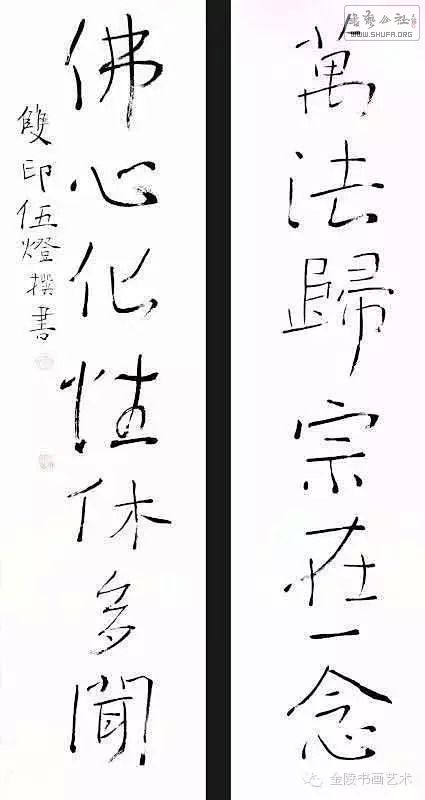 萬法歸宗在一念
佛心化性休多聞
雙印伍燈撰書
WWW.SHUFA.ORG
金陵书画艺术